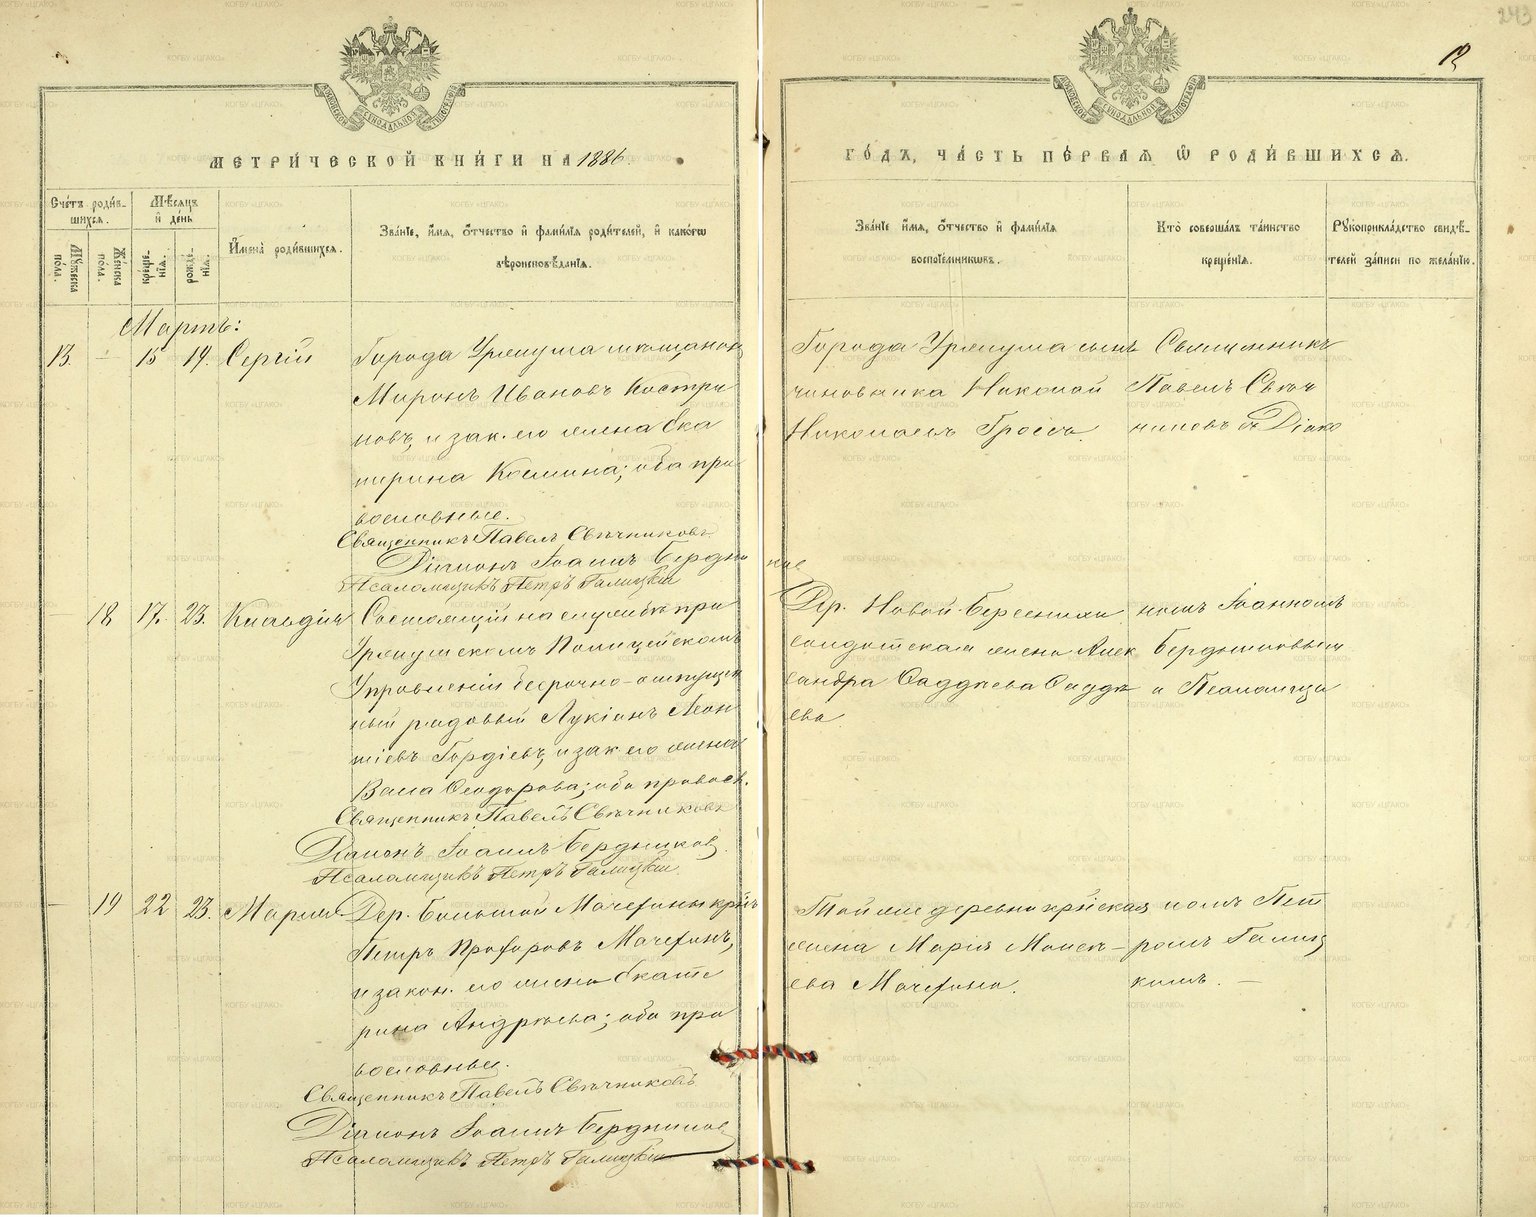 243
12
МЕТРИ́ЧЕСКОЙ КНИ́ГИ НА 1886
ГО́ДЪ, ЧА́СТЬ ПЕ́РВАЯ Ѡ РОДИ́ВШИХСЯ.
Сче́тъ роди́в-
шихся.
Му́жеска по́ла.
Же́нска по́ла.
Мѣ́сяцъ и́ де́нь
рожде́-
нія.
креще́-
нія.
И҆мена̀ роди́вшихся.
Зва́ніе, и҆́мя, ѻ҆́тчество и҆ фами́лїя роди́телей, и҆ како́гѡ
вѣроисповѣ́данїя.
Зва́нїе и҆́мя, ѻ҆́тчество и҆ фами́лїя
воспрїе́мникѡвъ.
Кто̀ соверша́лъ та́инство
креще́нїя.
Рꙋкоприкла́дство свидѣ́-
телей за́писи по жела́нїю.
Мартъ:
13. — 15 19. Сергій
Города Уржума мѣщанинъ
Миронъ Ивановъ Костри
новъ, и зак. его жена Ека
терина Космина; оба пра
вославные.
Священникъ Павелъ Свѣчниковъ
Діаконъ Іоаннъ Бердни
Псаломщикъ Петръ Галицкій
Города Уржума сынъ
чиновника Николай
Николаевъ
Священникъ
Павелъ Свѣч
никовъ съ Діако
— 18 17. 23. Клавдія
Состоящій на службѣ при
Уржумскомъ Полицейскомъ
Управленіи безсрочно-отпущен
ный рядовый Лукіанъ Леон
тіевъ Гордіевъ, и зак. его жена
Васса Ѳеодорова; оба правосл.
Священникъ Павелъ Свѣчниковъ
Діаконъ Іоаннъ Бердниковъ
Псаломщикъ Петръ Галицкій
Дер. Новой
солдатская жена Алек
сандра
ева.
номъ Іоанномъ
Бердниковымъ
и Псаломщи
— 19 22 23. Марія
Дер. Большой Мачехины кр-нъ
Петръ Прохоровъ Мачехинъ,
и закон. его жена Екате
рина Андрѣева; оба пра
вославные.
Священникъ Павелъ Свѣчниковъ
Діаконъ Іоаннъ Бердниковъ
Псаломщикъ Петръ Галицкій
Той же деревни крестьская
жена Марія Моисе-
ева Мачехина.
комъ Пет
ромъ Галиц
кимъ. —